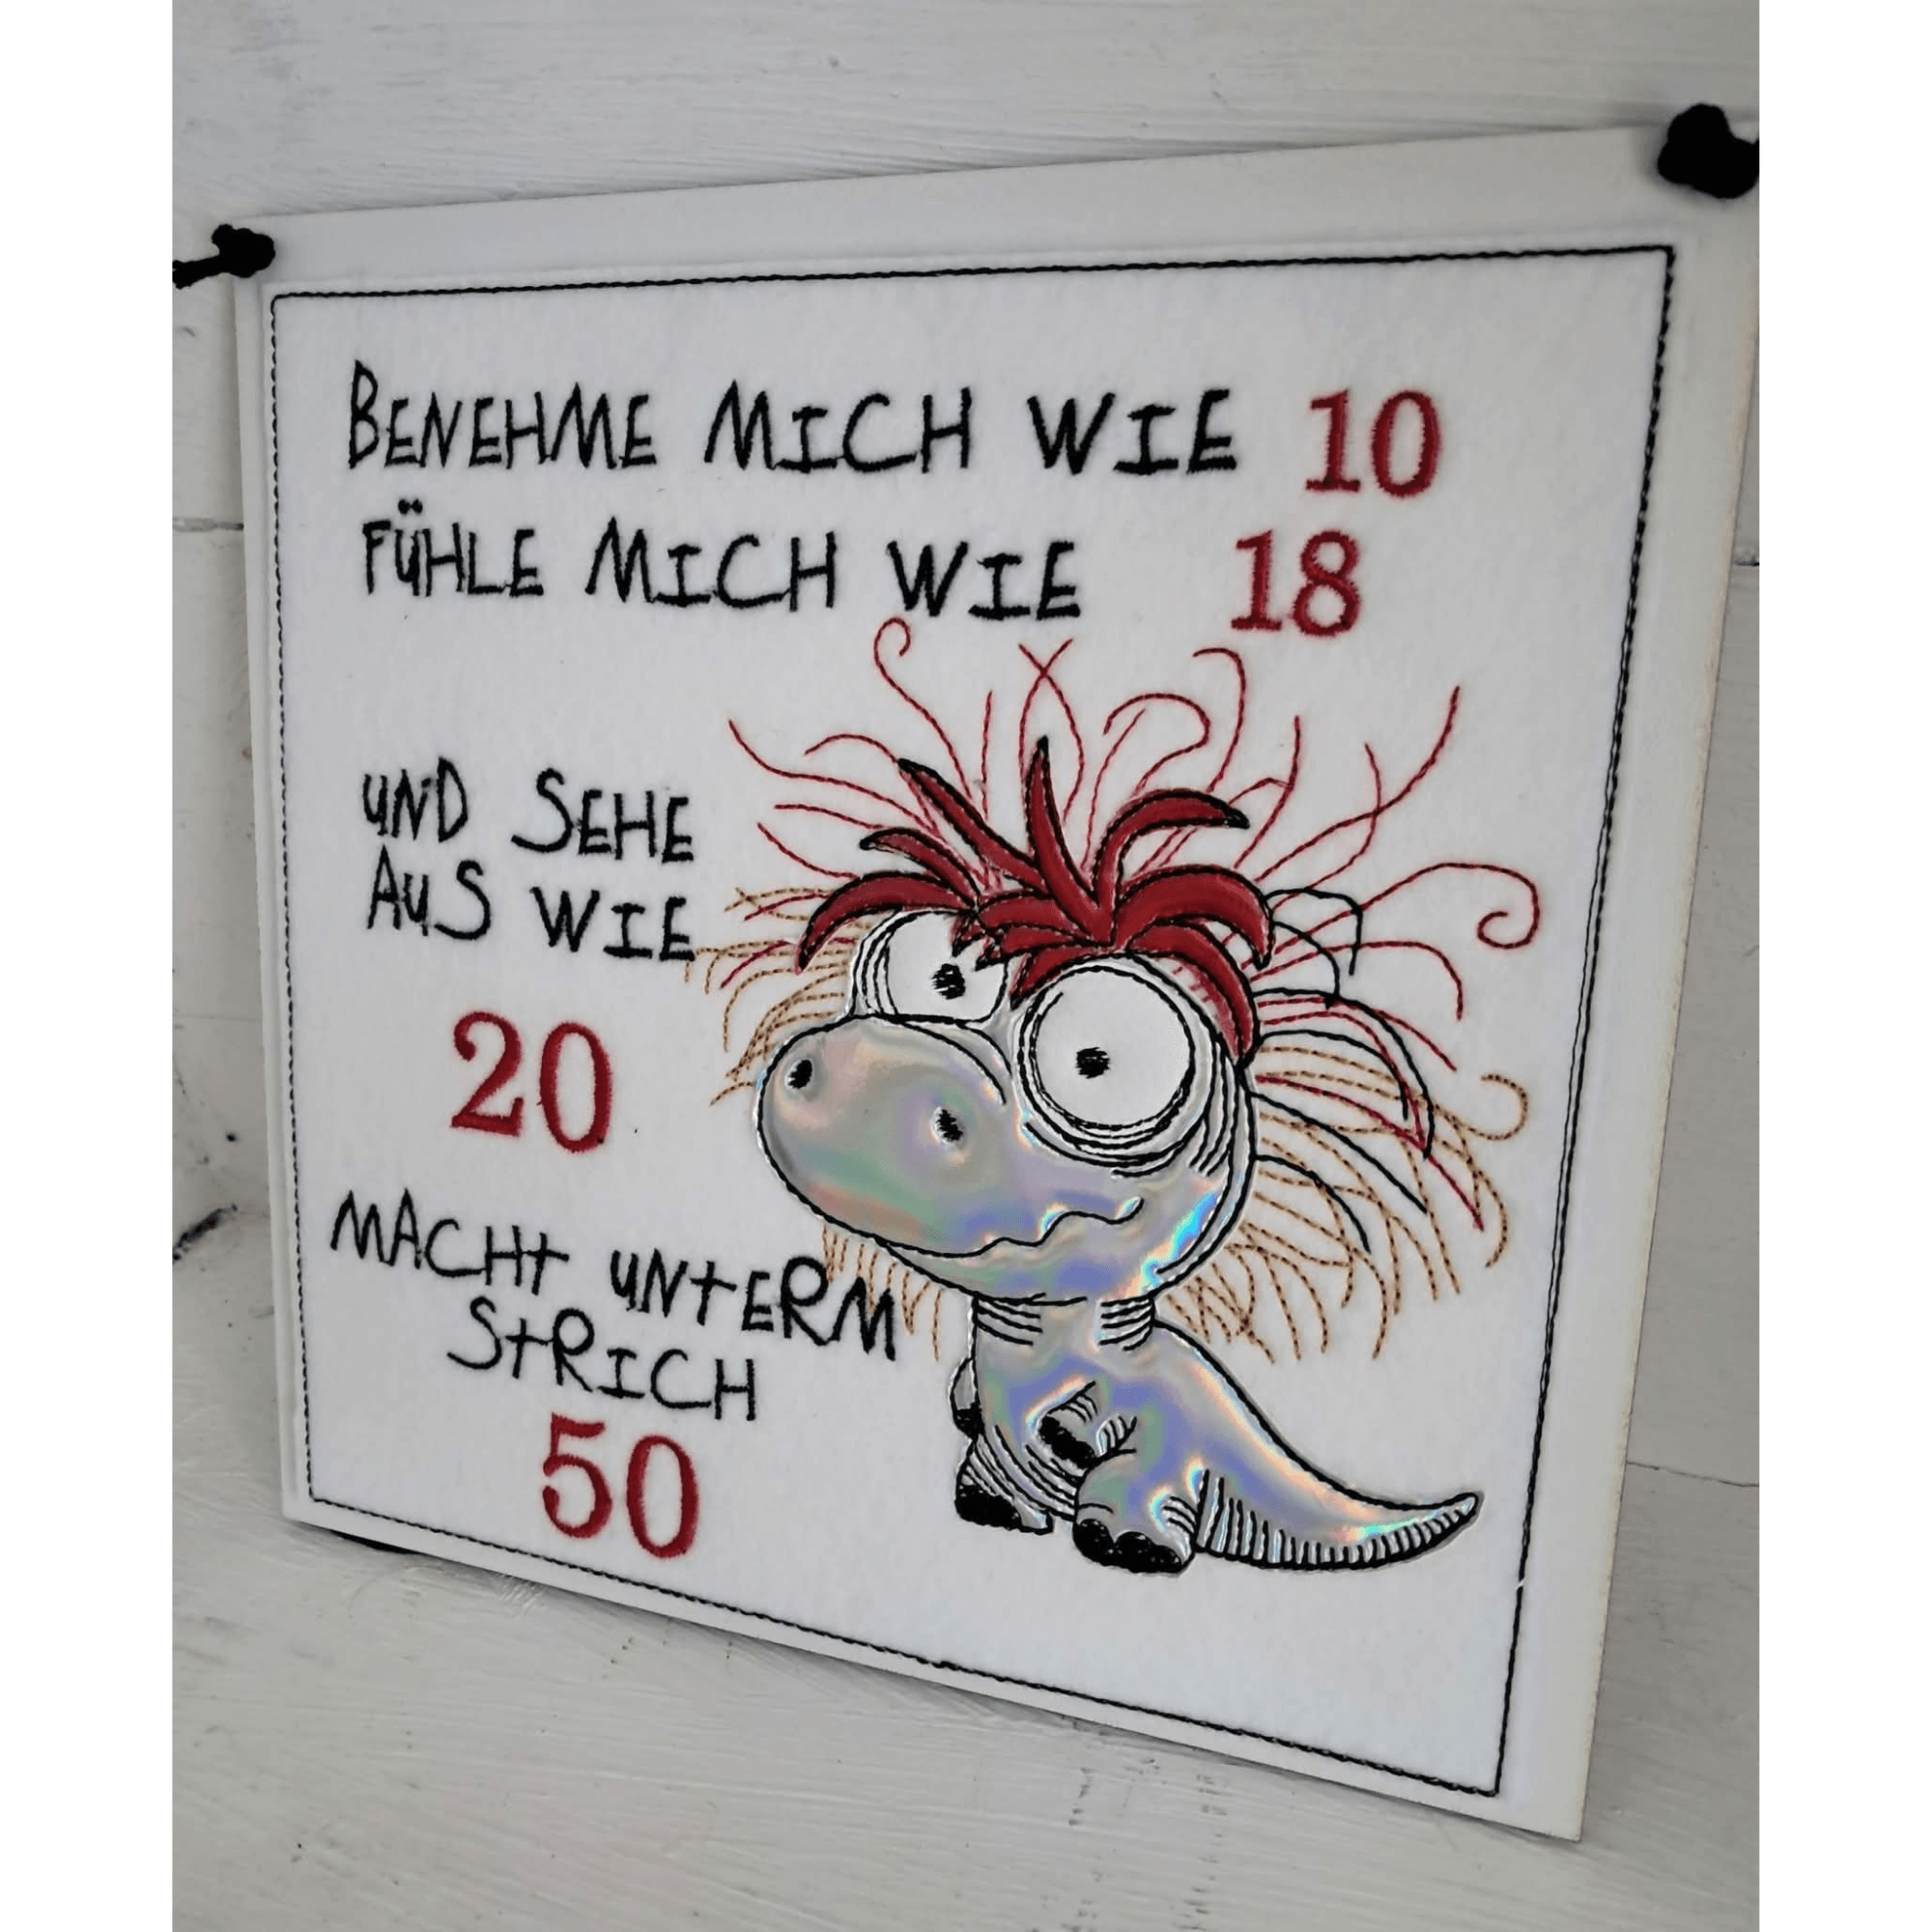 BENEHME MICH WIE 10
FÜHLE MICH WIE 18
UND SEHE
AUS WIE
20
MACHT UNTERM
STRICH
50